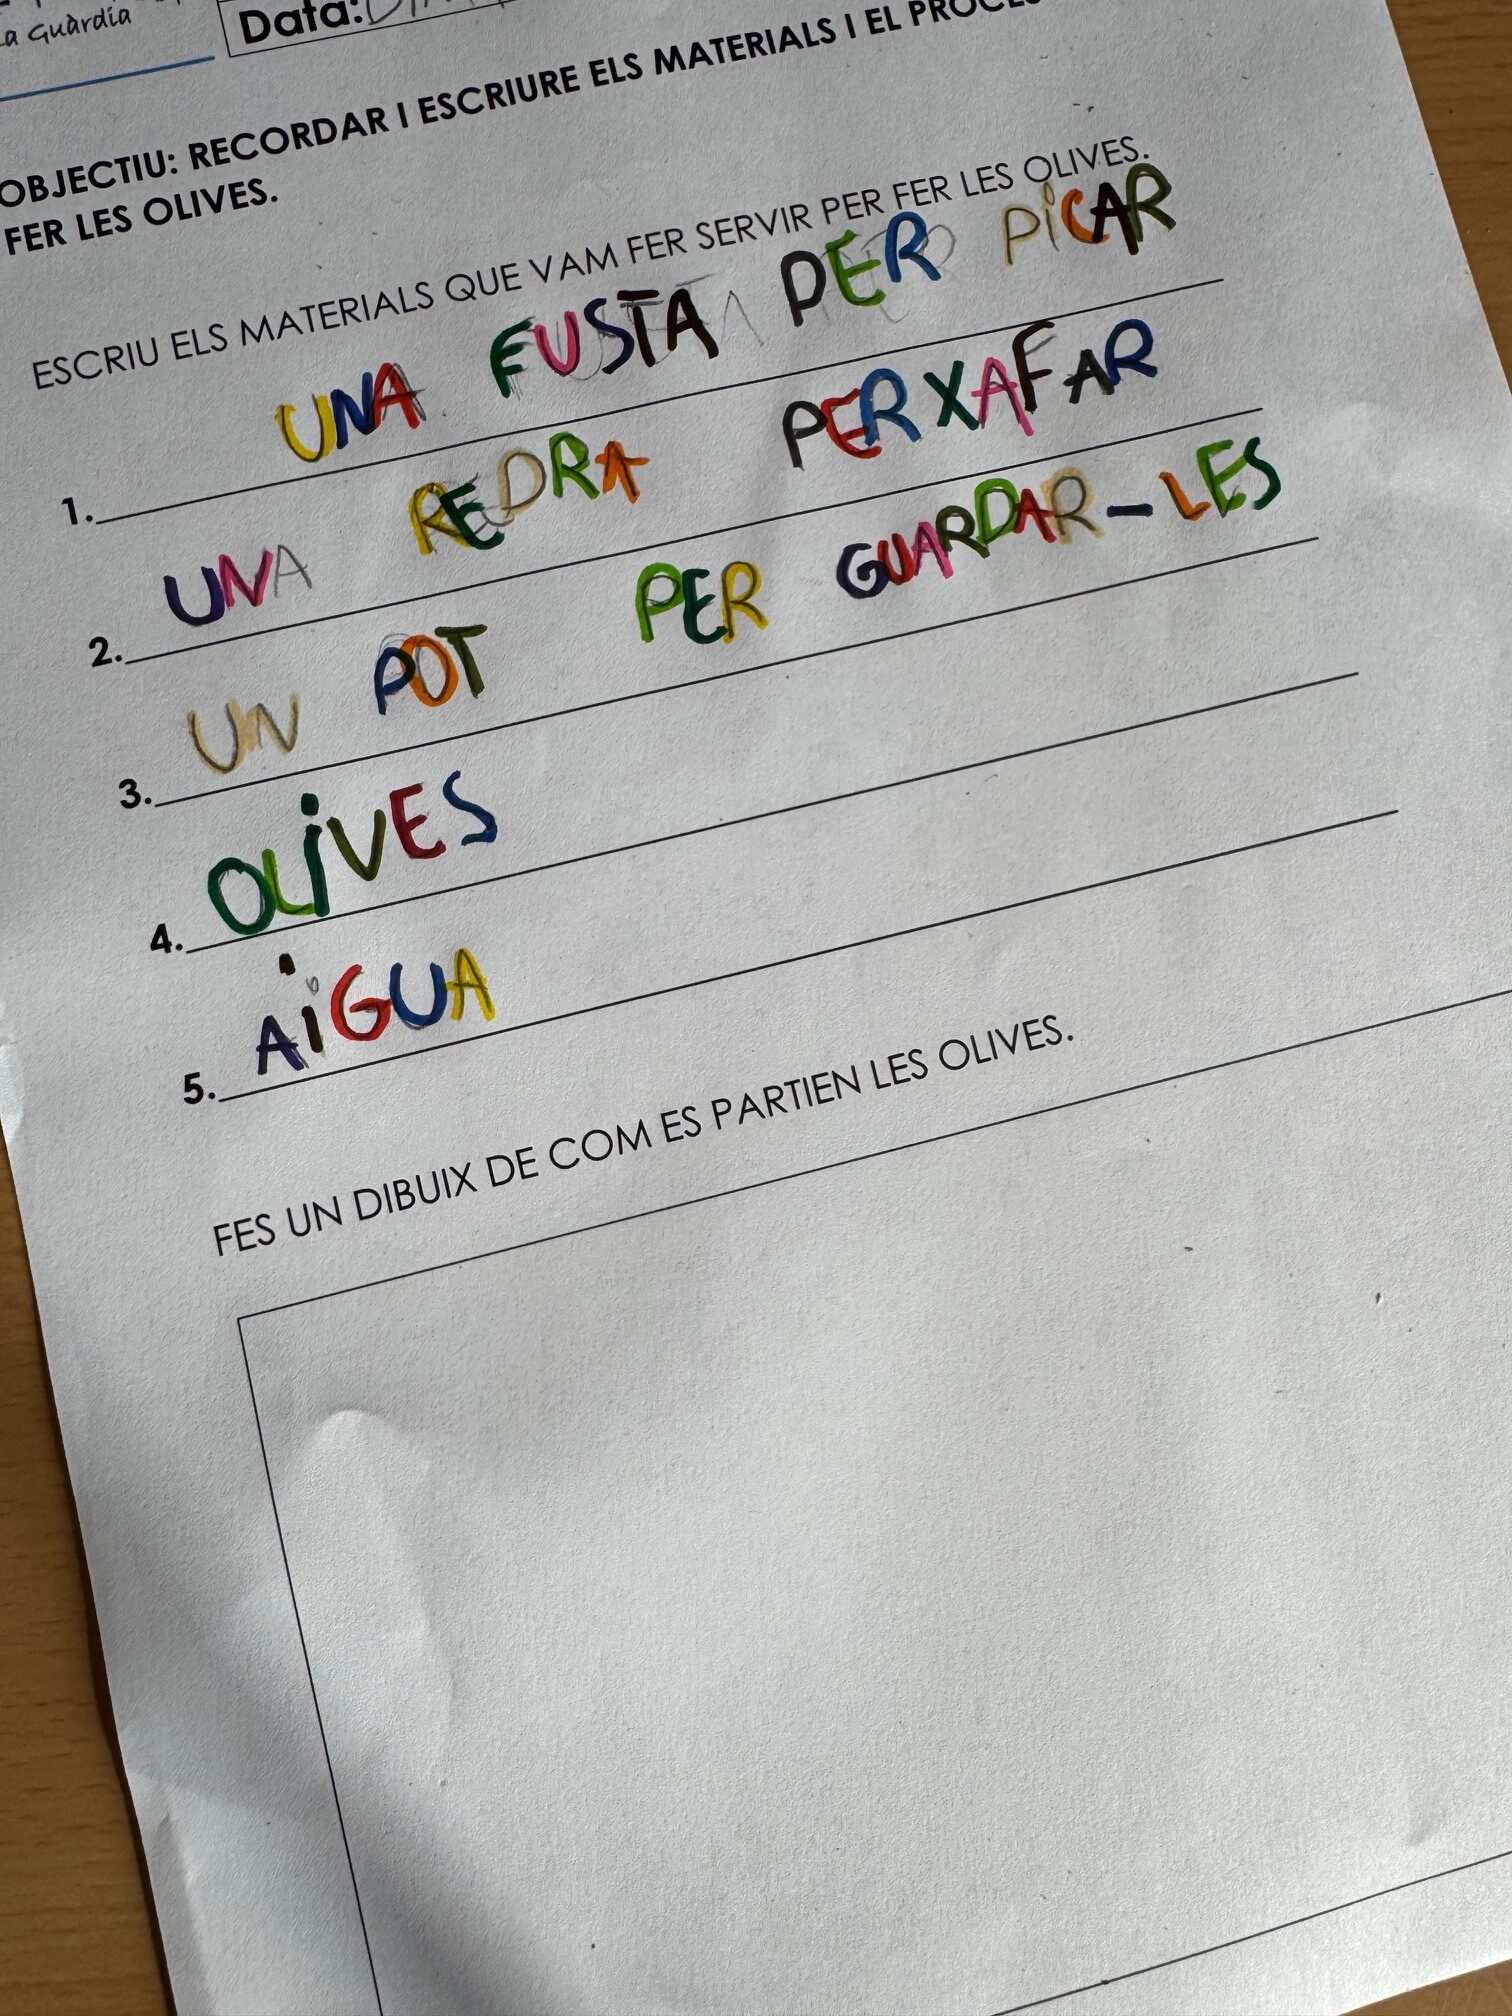 La Guàrdia
Data:
OBJECTIU: RECORDAR I ESCRIURE ELS MATERIALS I EL
FER LES OLIVES.
ESCRIU ELS MATERIALS QUE VAM FER SERVIR PER FER LES OLIVES.
1. UNA FUSTA PER PICAR
2. UNA REDRA PER XAFAR
3. UN POT PER GUARDAR-LES
4. OLIVES
5. AIGUA
FES UN DIBUIX DE COM ES PARTIEN LES OLIVES.